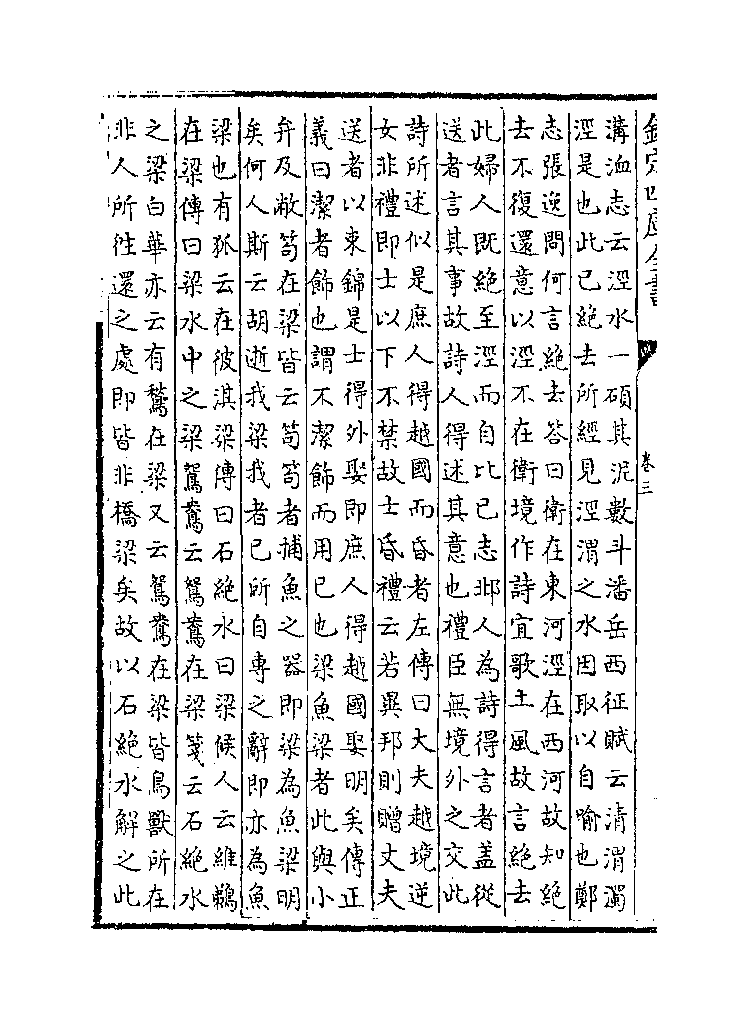 欽定四庫全書
卷三
溝洫志云涇水一碩其泥數斗潘岳西征賦云清渭濁
涇是也此已絶去所經見涇渭之水因取以自喻也鄭
志張逸問何言絶去答曰衛在東河涇在西河故知絶
去不復還意以涇不在衛境作詩宜歌土風故言絶去
此婦人既絶至涇而自比已志邶人為詩得言者盖從
送者言其事故詩人得述其意也禮臣無境外之交此
詩所述似是庶人得越國而昏者左傳曰大夫越境逆
女非禮即士以下不禁故士昏禮云若異邦則贈丈夫
送者以束錦是士得外娶即庶人得越國娶明矣傳正
義曰潔者飾也謂不潔飾而用已也梁魚梁者此與小
弁及敝笱在梁皆云笱笱者捕魚之器即梁為魚梁明
矣何人斯云胡逝我梁我者已所自専之辭即亦為魚
梁也有狐云在彼淇梁傳曰石絶水曰梁候人云維鵜
在梁傳曰梁水中之梁鴛鴦云鴛鴦在梁箋云石絶水
之梁白華亦云有鶖在梁又云鴛鴦在梁皆鳥獸所在
非人所往還之處即皆非橋梁矣故以石絶水解之此